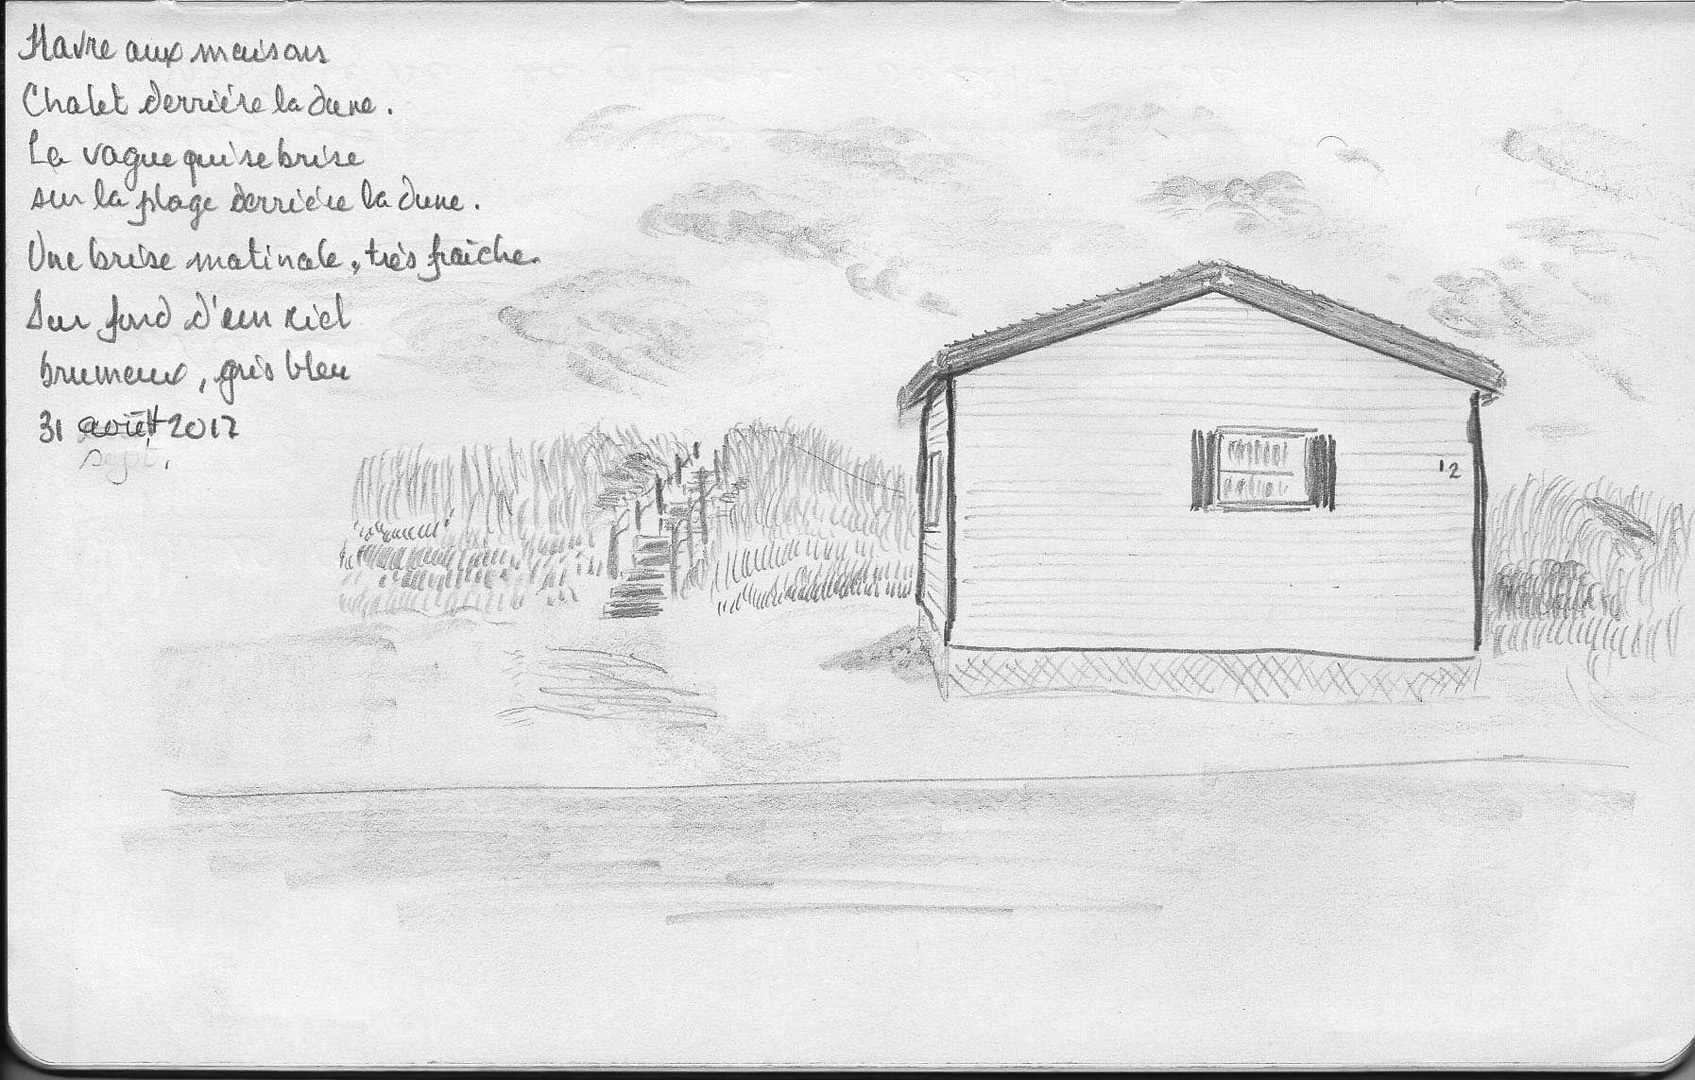 Havre aux maisons
Chalet derrière la dune.
La vague qui se brise
sur la plage derrière la dune.
Une brise matinale, très fraîche.
Sur fond d'un ciel
brumeux, gris bleu
31 août 2017
sept.
12